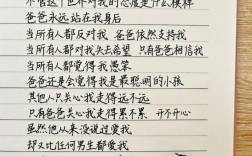 不管这个世界对我的态度是什么模样
爸爸永远站在我身后
当所有人都反对我 爸爸依然支持我
当所有人都对我失去希望 只有爸爸相信我
当所有人都觉得我愚笨
爸爸还是会觉得我是最聪明的小孩
其他人只关心我走得远不远
只有爸爸关心我走得累不累 开不开心
虽然他从来没说过爱我
却又比任何男生都爱我